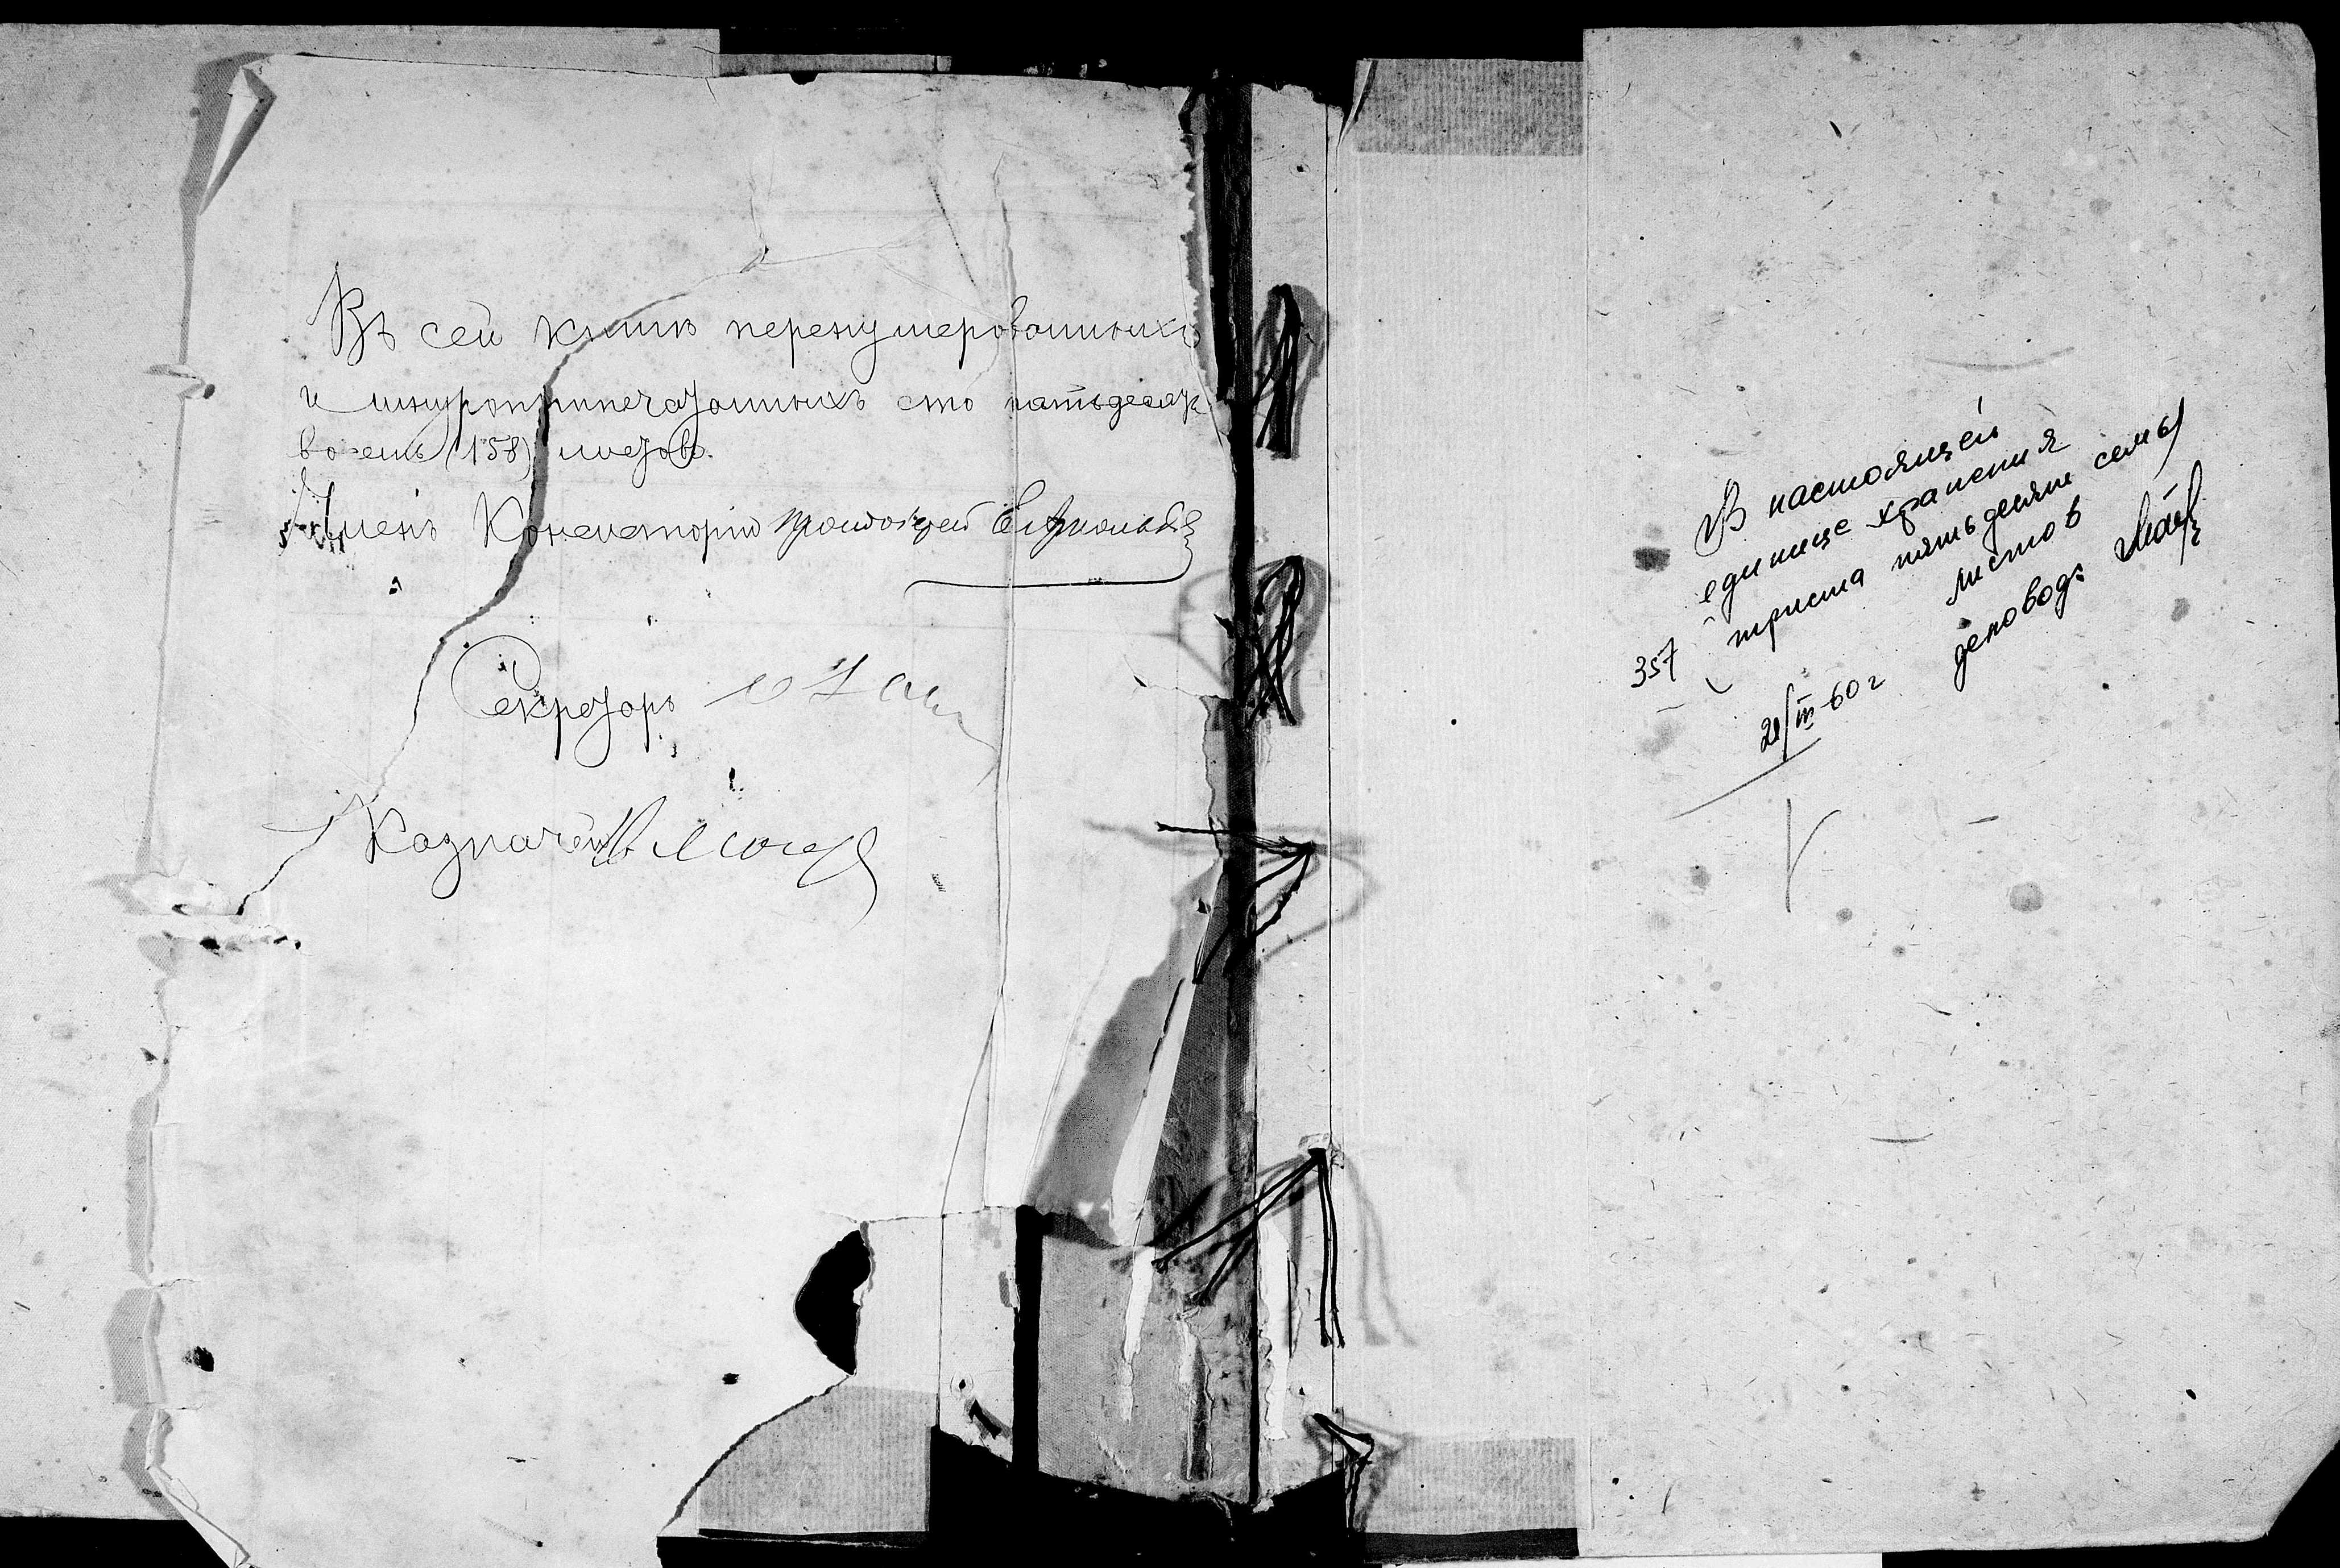 Въ сей книгѣ перенумерованныхъ
и шнуроприпечатанныхъ сто пятьдесят
восемь (158) листовъ.
Членъ Консисторіи Протоіерей
Секретарь
Казначей
В настоящей
единице хранения
357 (триста пятьдесят семь)
листов
21/III-60 г деловод: